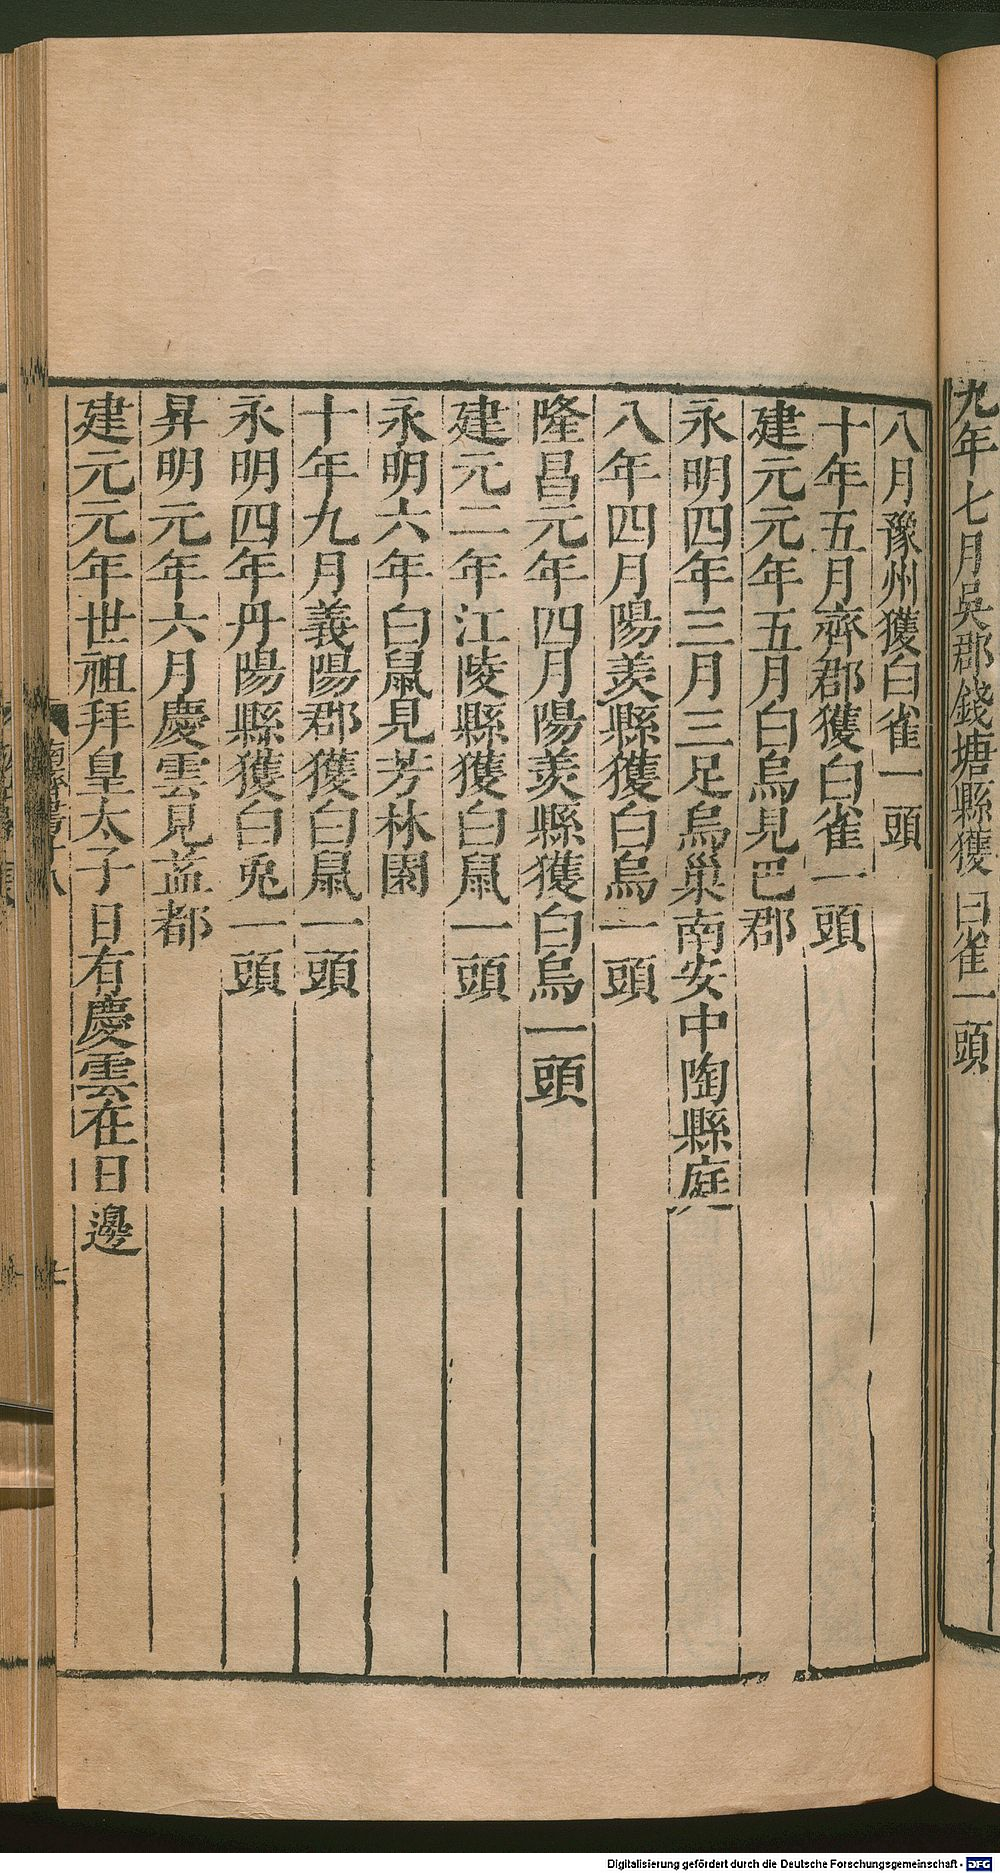 九年七月吳郡錢塘縣獲白雀一頭
八月豫州獲白雀一頭
十年五月齊郡獲白雀一頭
建元元年五月白烏見巴郡
永明四年三月三足烏巢南安中陶縣庭
八年四月陽羨縣獲白烏一頭
隆昌元年四月陽羨縣獲白烏一頭
建元二年江陵縣獲白鼠一頭
永明六年白鼠見芳林園
十年九月義陽郡獲白鼠一頭
永明四年丹陽縣獲白兎一頭
昇明元年六月慶雲見益都
建元元年世祖拜皇太子日有慶雲在日邊
Digitalisierung gefördert durch die Deutsche Forschungsgemeinschaft - DFG